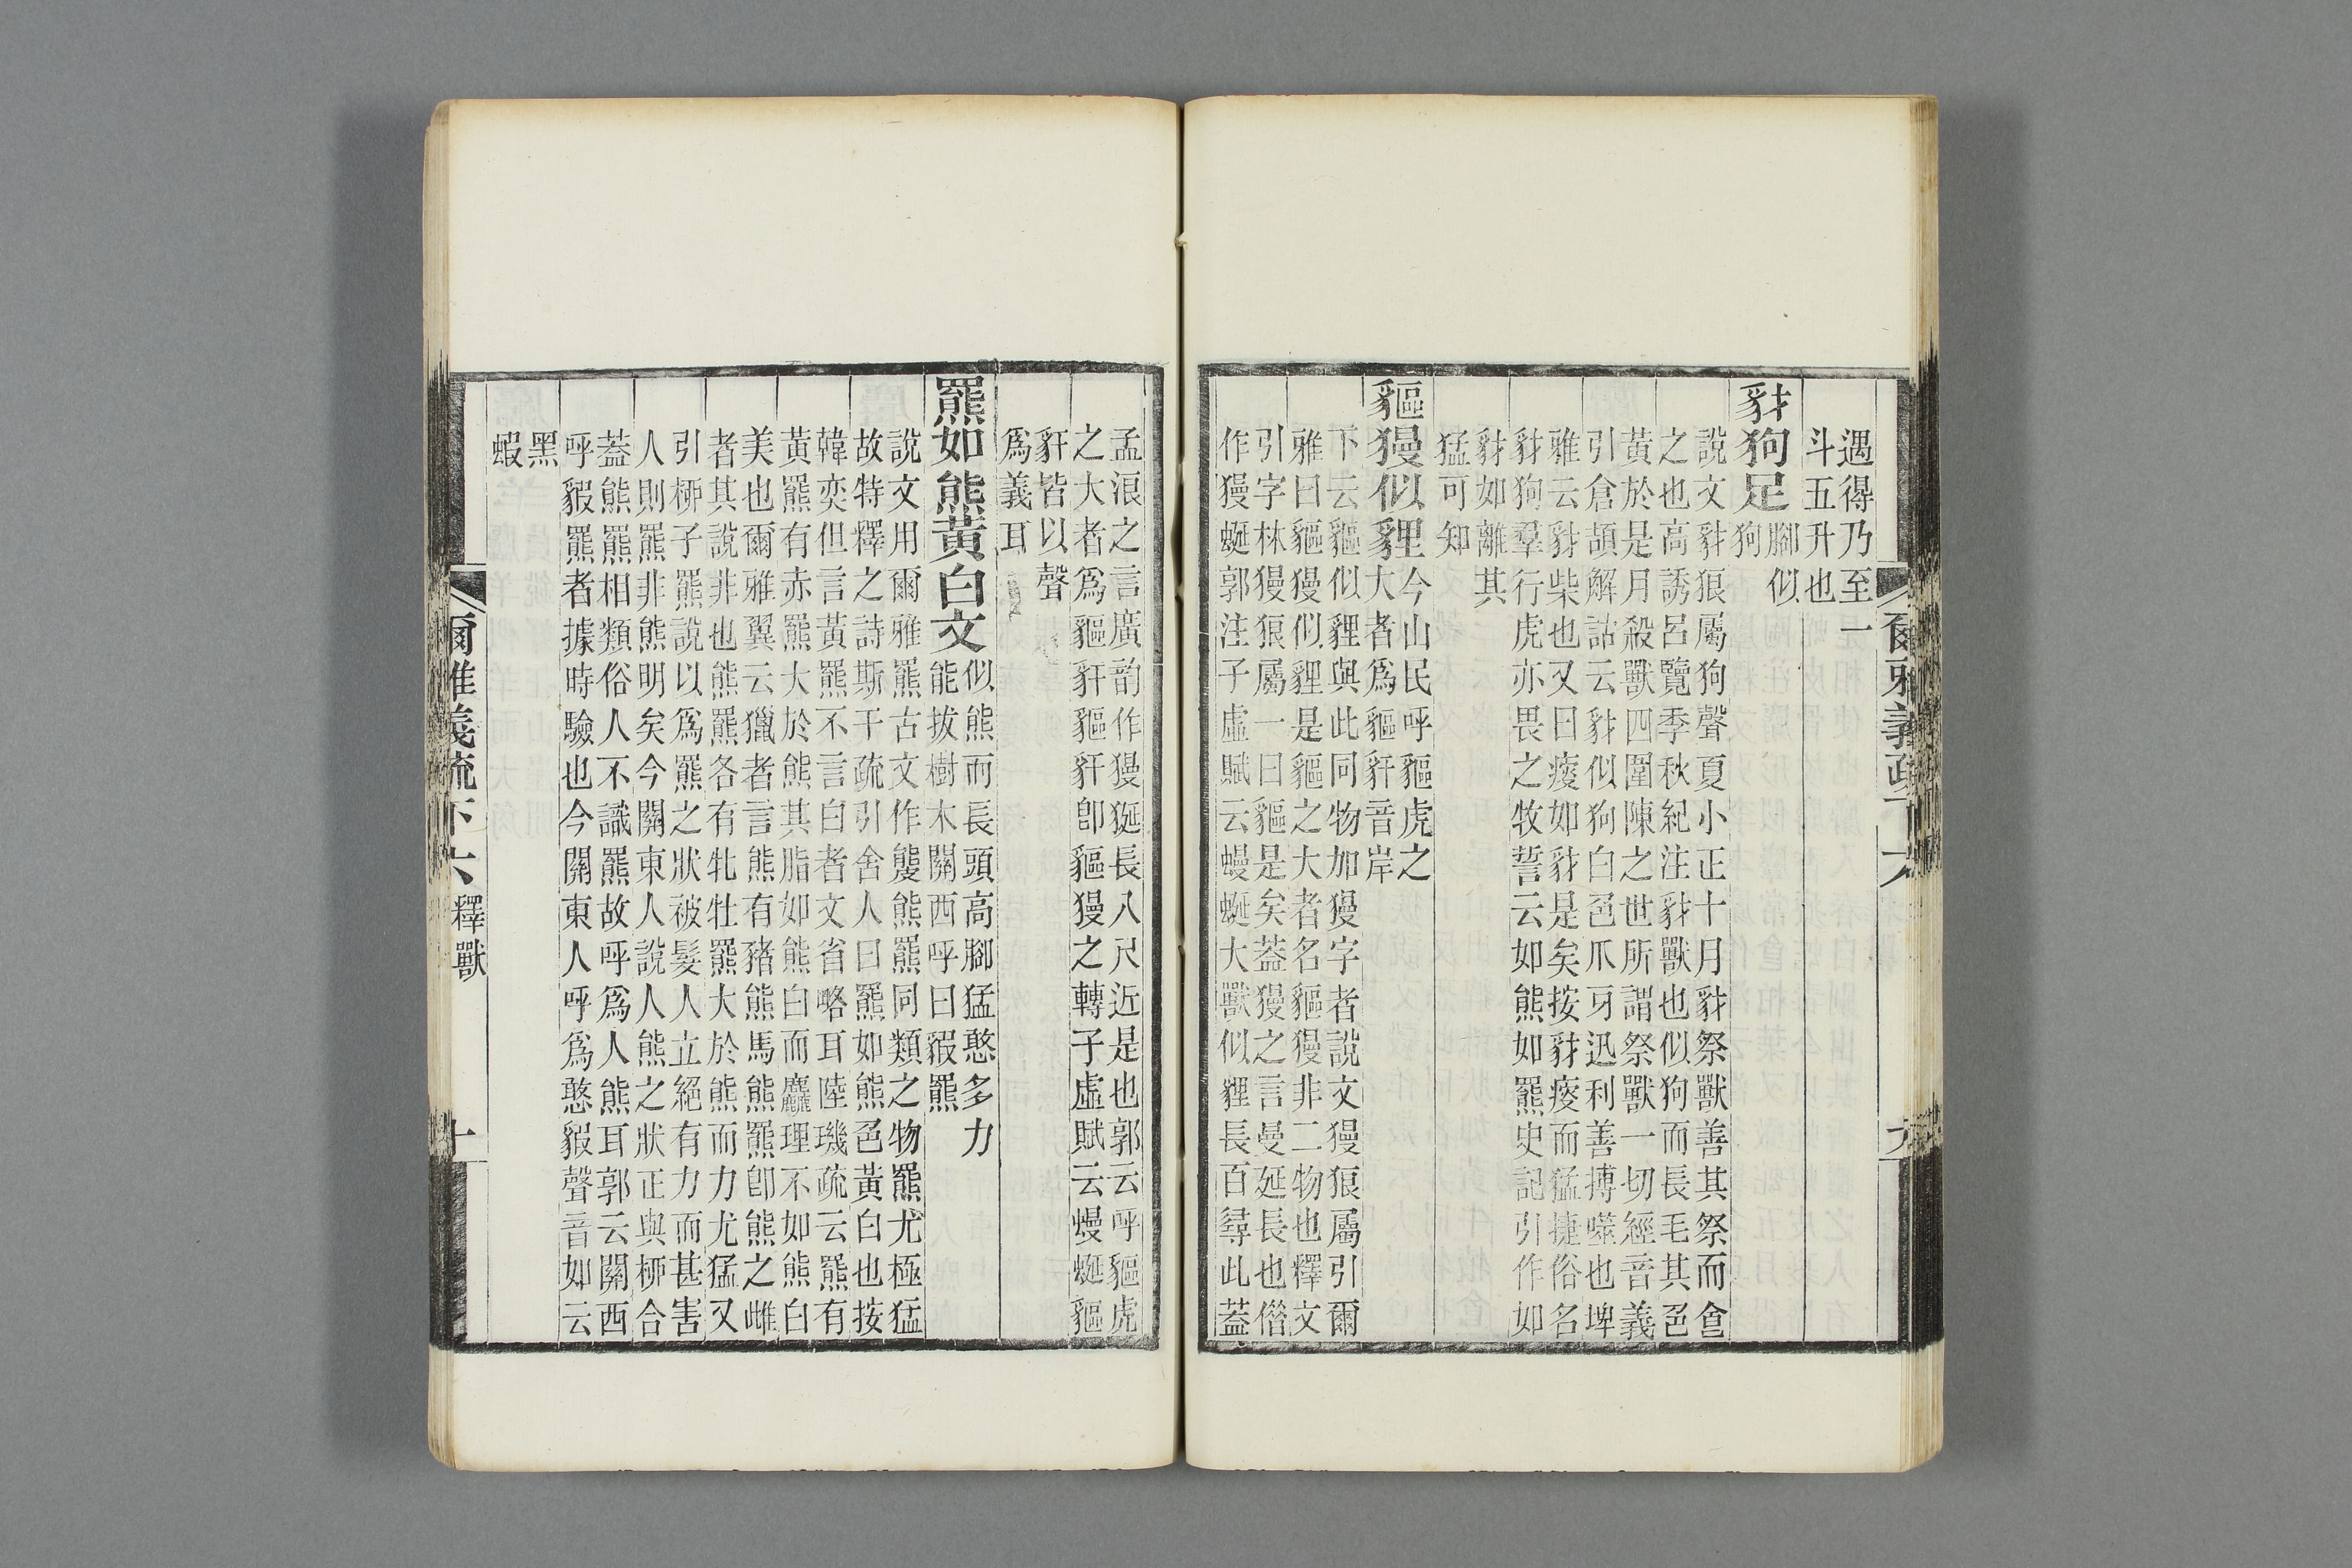 爾雅義疏下六
九
遇得乃至一
斗五升也
豺狗足
腳似
狗
說文豺狼屬狗聲夏小正十月豺祭獸善其祭而食
之也高誘呂覽季秋紀注豺獸也似狗而長毛其色
黃於是月殺獸四圍陳之世所謂祭獸一切經音義
引倉頡解詁云豺似狗白色爪牙迅利善搏噬也埤
雅云豺柴也又曰瘦如豺是矣按豺瘦而猛捷俗名
豺狗羣行虎亦畏之牧誓云如熊如羆史記引作如
豺如離其
猛可知
貙獌似貍
今山民呼貙虎之
大者爲貙豻音岸
下云貙似貍與此同物加獌字者說文獌狼屬引爾
雅曰貙獌似貍是貙之大者名貙獌非二物也釋文
引字林獌狼屬一曰貙是矣蓋獌之言曼延長也偺
作獌蜒郭注子虛賦云蟃蜒大獸似貍長百尋此蓋
孟浪之言廣韵作獌狿長八尺近是也郭云呼貙虎
之大者爲貙豻貙豻卽貙獌之轉子虛賦云蟃蜒貙
豻皆以聲
爲義耳
羆如熊黃白文
似熊而長頭高腳猛憨多力
能拔樹木關西呼曰貑羆
說文用爾雅羆古文作䍤熊羆同類之物羆尤極猛
故特釋之詩斯干疏引舍人曰羆如熊色黃白也按
韓奕但言黃羆不言白者文省略耳陸璣疏云羆有
黃羆有赤羆大於熊其脂如熊白而麤理不如熊白
美也爾雅翼云獵者言熊有豬熊馬熊羆卽熊之雌
者其說非也熊羆各有牝牡羆大於熊而力尤猛又
引栁子羆說以爲羆之狀被髮人立絕有力而甚害
人則羆非熊明矣今關東人說人熊之狀正與栁合
蓋熊羆相類俗人不識羆故呼爲人熊耳郭云關西
呼貑羆者據時驗也今關東人呼爲憨貑聲音如云
黑
蝦
爾雅義疏下六
釋獸
十